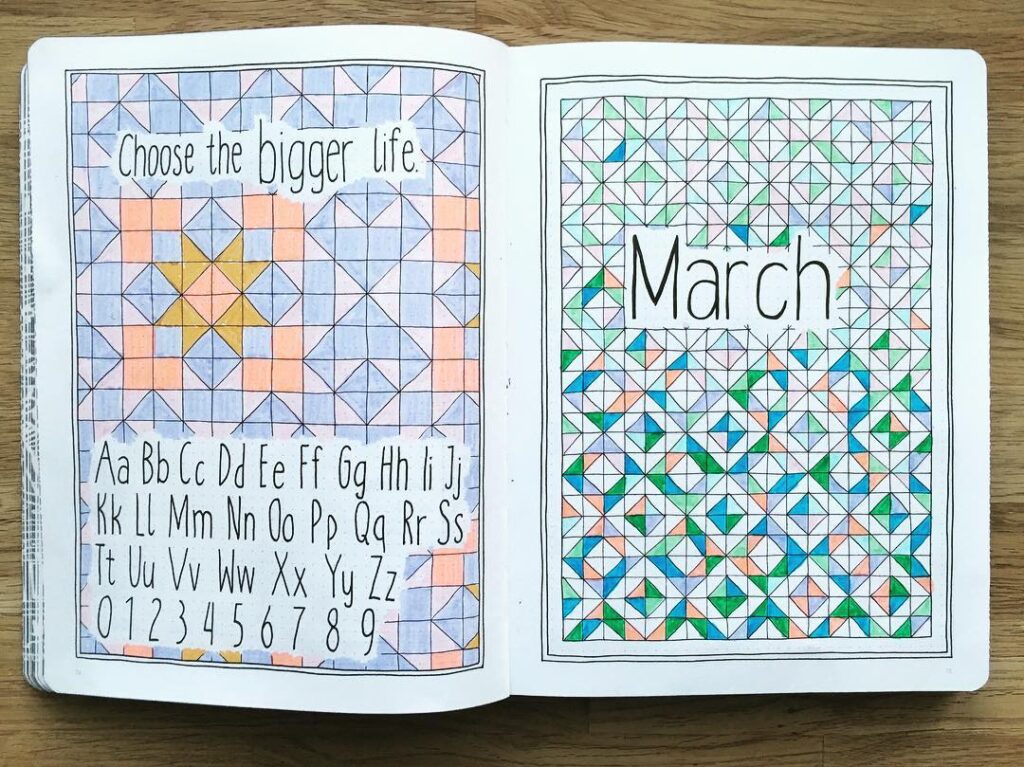 Choose the bigger life.
Aa Bb Cc Dd Ee Ff Gg Hh Ii Jj
Kk Ll Mm Nn Oo Pp Qq Rr Ss
Tt Uu Vv Ww Xx Yy Zz
0 1 2 3 4 5 6 7 8 9
March